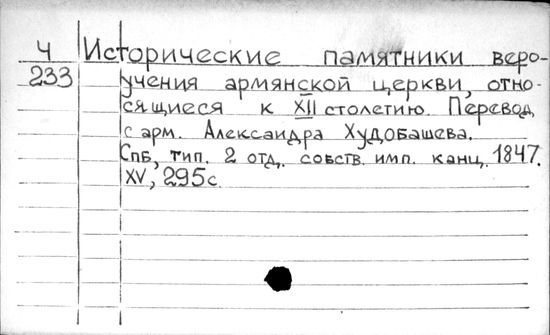 Ч Исторические памятники веро-
233 учения армянской церкви, отно-
сящиеся к XII столетию. Перевод
с арм. Александра Худобашева.
Спб, тип. 2 отд. собств. имп. канц. 1847.
XV, 295 с.